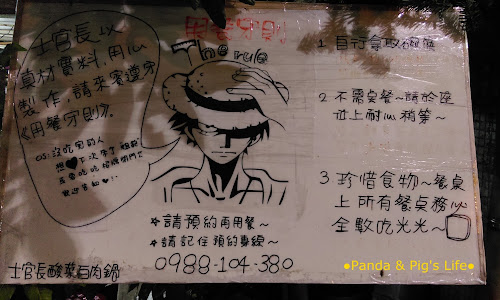 用餐守則
The rule
士官長以
真材實料,用心
製作,請來賓遵守
《用餐守則》。
OS:沒吃完的人
1 自行拿取碗筷
2 不需桌餐~請於座
位上耐心稍等~
3 珍惜食物~餐桌
上所有餐點務必
全數吃光光~
★請預約再用餐~
★請記住預約專線~
0988-104-380
士官長酸菜白肉鍋
●Panda & Pig's Life●